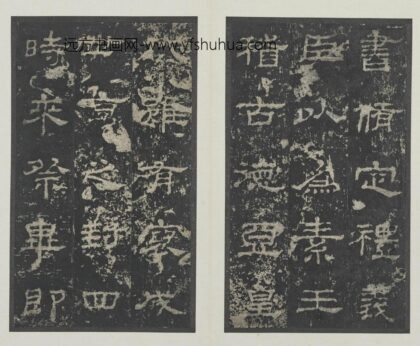 远方书画网-www.yfshuhua.com
書脩定禮義
臣以為素王
稽古德亞皇
代雖有褒成
世享之封四
時來祭畢即